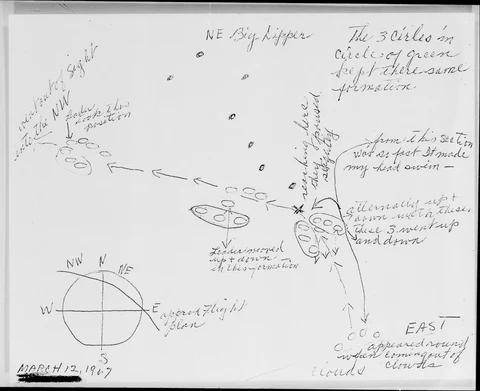 NE Big Dipper
The 3 Cirles in
Circle of green
kept there same
formation
went out of sight
into the NW
Leader took this
position
reaching here
they paused
slightly
from this section
was so fast It made
my head swim -
alternally up +
down with these
these 3 went up
and down
Leader moved
up + down
in this formation
NW N NE
W E
S
Flight
plan
EAST
appeared round
when coming out of
clouds
clouds
MARCH 12, 1967